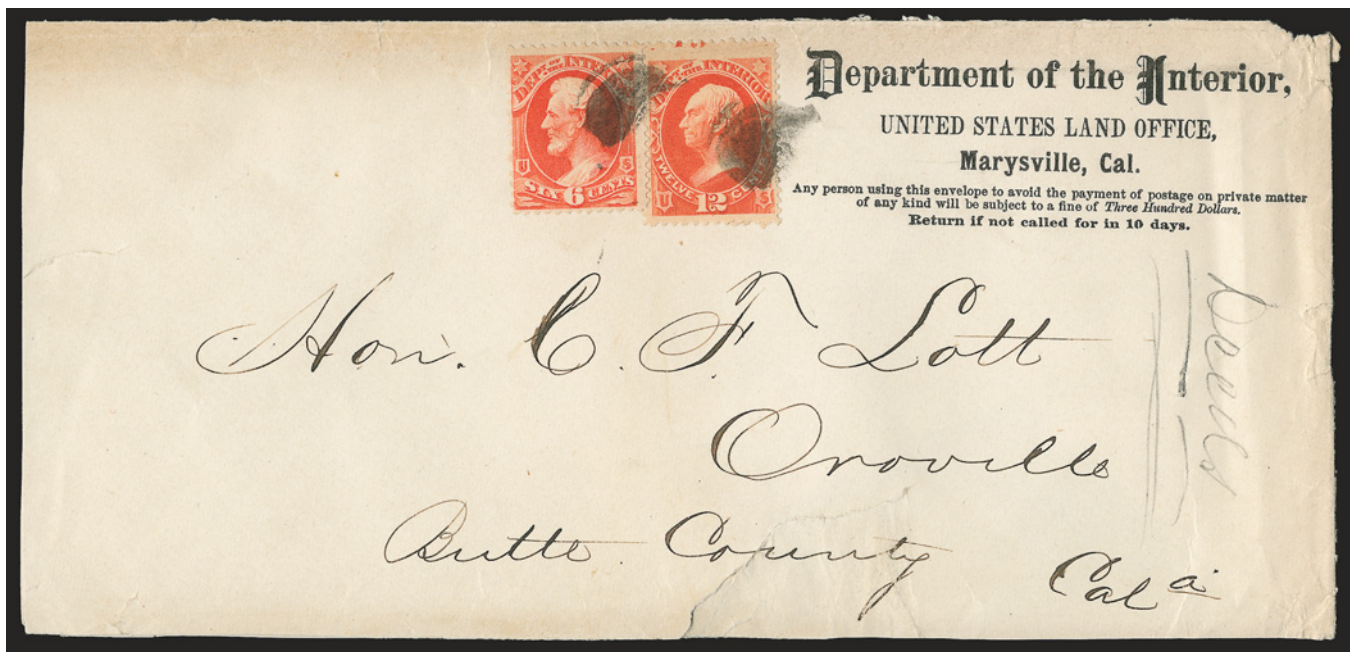 DEPT. OF THE INTERIOR
U S
SIX 6 CENTS
DEPT. OF THE INTERIOR
U S
TWELVE 12 CENTS
Department of the Interior,
UNITED STATES LAND OFFICE,
Marysville, Cal.
Any person using this envelope to avoid the payment of postage on private matter
of any kind will be subject to a fine of Three Hundred Dollars.
Return if not called for in 10 days.
Hon. C. F. Lott
Oroville
Butte County
Cala